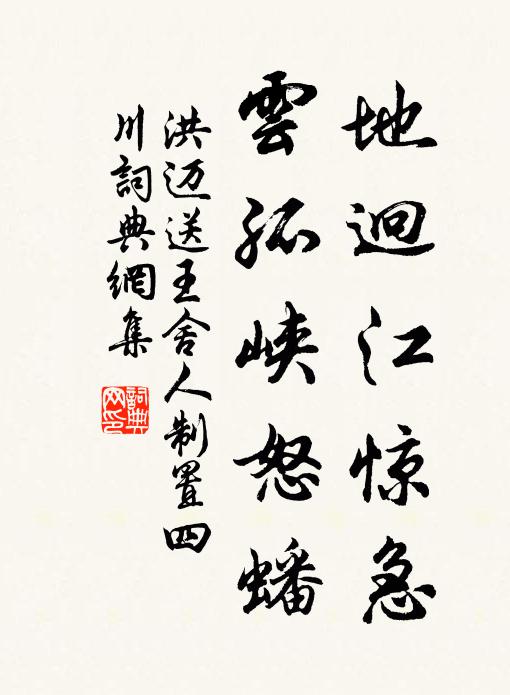 地迥江惊急
雲孤峡怒蟠
洪迈送王舍人制置四
川詞典網集
詞典网印